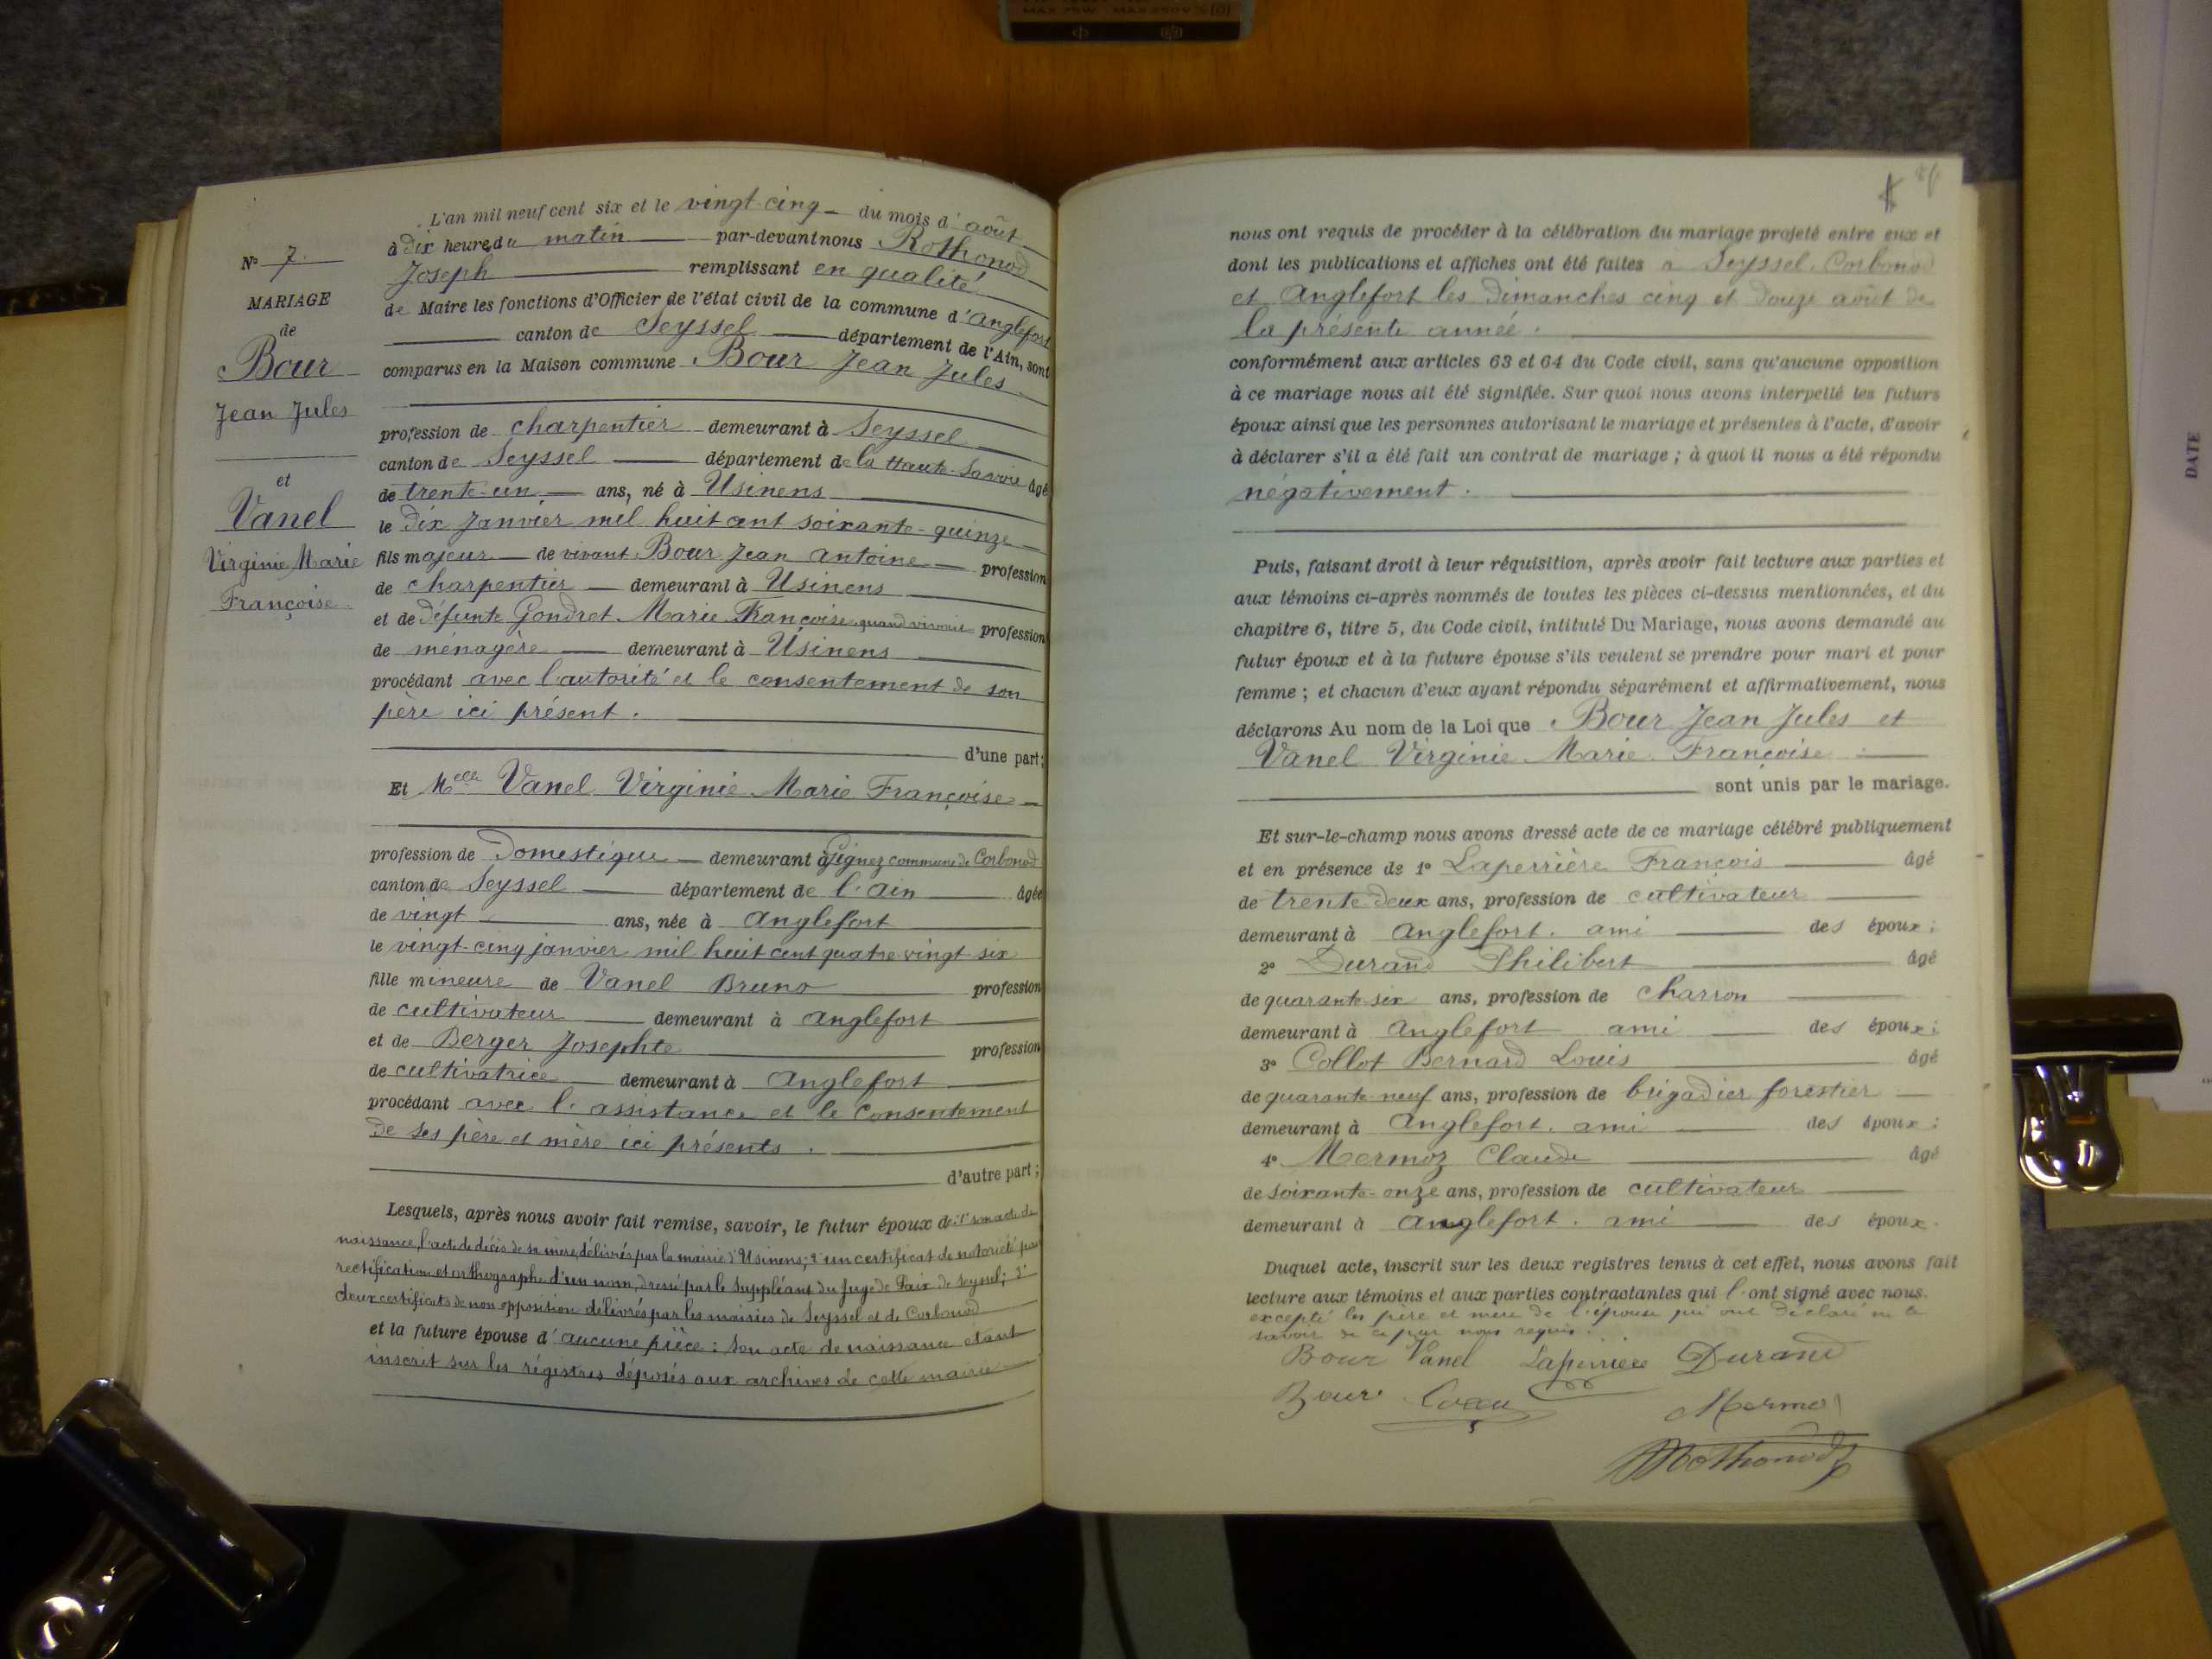 L'an mil neuf cent six et le vingt-cinq du mois d'août
à dix heures du matin par-devant nous Rothonod
Joseph remplissant en qualité
de Maire les fonctions d'Officier de l'état civil de la commune d'Anglefort
canton de Seyssel département de l'Ain, sont
comparus en la Maison commune Bour Jean Jules
profession de charpentier demeurant à Seyssel
canton de Seyssel département de la Haute-Savoie âgé
de trente-un ans, né à Usinens
le dix janvier mil huit cent soixante-quinze
fils majeur de vivant Bour Jean Antoine profession
de charpentier demeurant à Usinens
et de défunte Gondret Marie Françoise quand vivait profession
de ménagère demeurant à Usinens
procédant avec l'autorité et le consentement de son
père ici présent.
d'une part;
Et Melle Vanel Virginie Marie Françoise
profession de Domestique demeurant à Gignez commune de Corbonod
canton de Seyssel département de l'Ain âgée
de vingt ans, née à Anglefort
le vingt-cinq janvier mil huit cent quatre-vingt-six
fille mineure de Vanel Bruno profession
de cultivateur demeurant à Anglefort
et de Berger Josephte profession
de cultivatrice demeurant à Anglefort
procédant avec l'assistance et le consentement
de ses père et mère ici présents.
d'autre part;
Lesquels, après nous avoir fait remise, savoir, le futur époux de: 1° son acte de
naissance, l'acte de décès de sa mère, délivrés par la mairie d'Usinens; 2° un certificat de notoriété pour
rectification et orthographe d'un nom, dressé par le Suppléant du Juge de Paix de Seyssel; 3°
deux certificats de non opposition délivrés par les mairies de Seyssel et de Corbonod
et la future épouse d'aucune pièce: son acte de naissance étant
inscrit sur les régistres déposés aux archives de cette mairie
N° 7.
MARIAGE
de
Bour
Jean Jules
et
Vanel
Virginie Marie
Françoise
nous ont requis de procéder à la célébration du mariage projeté entre eux et
dont les publications et affiches ont été faites à Seyssel, Corbonod
et Anglefort les dimanches cinq et douze août de
la présente année.
conformément aux articles 63 et 64 du Code civil, sans qu'aucune opposition
à ce mariage nous ait été signifiée. Sur quoi nous avons interpellé les futurs
époux ainsi que les personnes autorisant le mariage et présentes à l'acte, d'avoir
à déclarer s'il a été fait un contrat de mariage; à quoi il nous a été répondu
négativement.
Puis, faisant droit à leur réquisition, après avoir fait lecture aux parties et
aux témoins ci-après nommés de toutes les pièces ci-dessus mentionnées, et du
chapitre 6, titre 5, du Code civil, intitulé Du Mariage, nous avons demandé au
futur époux et à la future épouse s'ils veulent se prendre pour mari et pour
femme; et chacun d'eux ayant répondu séparément et affirmativement, nous
déclarons Au nom de la Loi que Bour Jean Jules et
Vanel Virginie Marie Françoise
sont unis par le mariage.
Et sur-le-champ nous avons dressé acte de ce mariage célébré publiquement
et en présence de 1° Laperrière François âgé
de trente-deux ans, profession de cultivateur
demeurant à Anglefort. ami des époux;
2° Durand Philibert âgé
de quarante-six ans, profession de charron
demeurant à Anglefort ami des époux;
3° Collot Bernard Louis âgé
de quarante-neuf ans, profession de brigadier forestier
demeurant à Anglefort. ami des époux;
4° Mermoz Claude âgé
de soixante-onze ans, profession de cultivateur
demeurant à Anglefort. ami des époux.
Duquel acte, inscrit sur les deux registres tenus à cet effet, nous avons fait
lecture aux témoins et aux parties contractantes qui l'ont signé avec nous.
excepté les père et mère de l'épouse qui ont déclaré ne le
savoir de ce par nous requis.
Bour Vanel Laperrière Durand
Bour Mermo
Rothonod
DATE